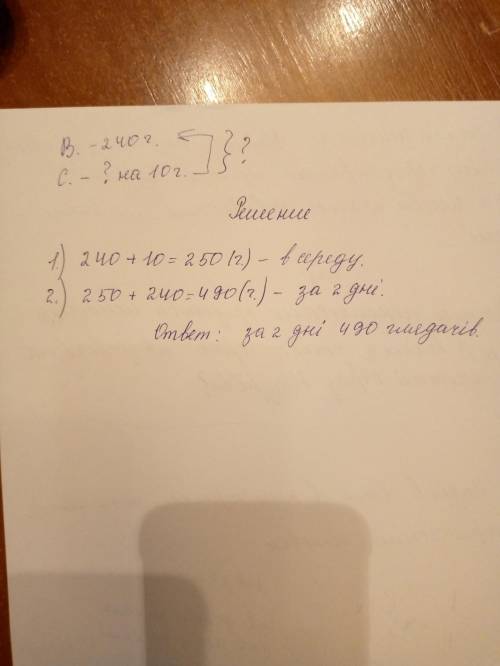 В. - 240 г.
С. - ? на 10 г. } ?
Решение
1.) 240 + 10 = 250 (г.) - в середу.
2.) 250 + 240 = 490 (г.) - за 2 дні.
Ответ: за 2 дні 490 глядачів.